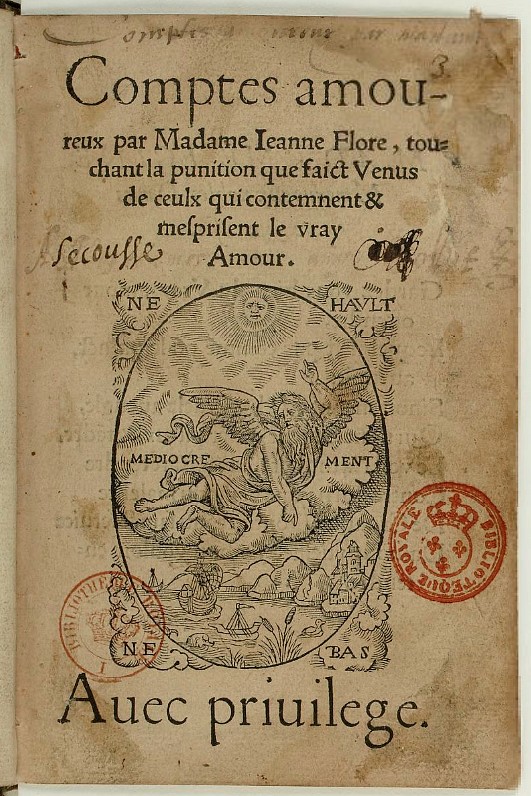 3
Comptes amou-
reux par Madame Ieanne Flore, tou=
chant la punition que faict Venus
de ceulx qui contemnent &
mesprisent le vray
Amour.
Secousse
NE HAULT
MEDIOCRE MENT
BIBLIOTEQUE ROYALE
NE BAS
Auec priuilege.